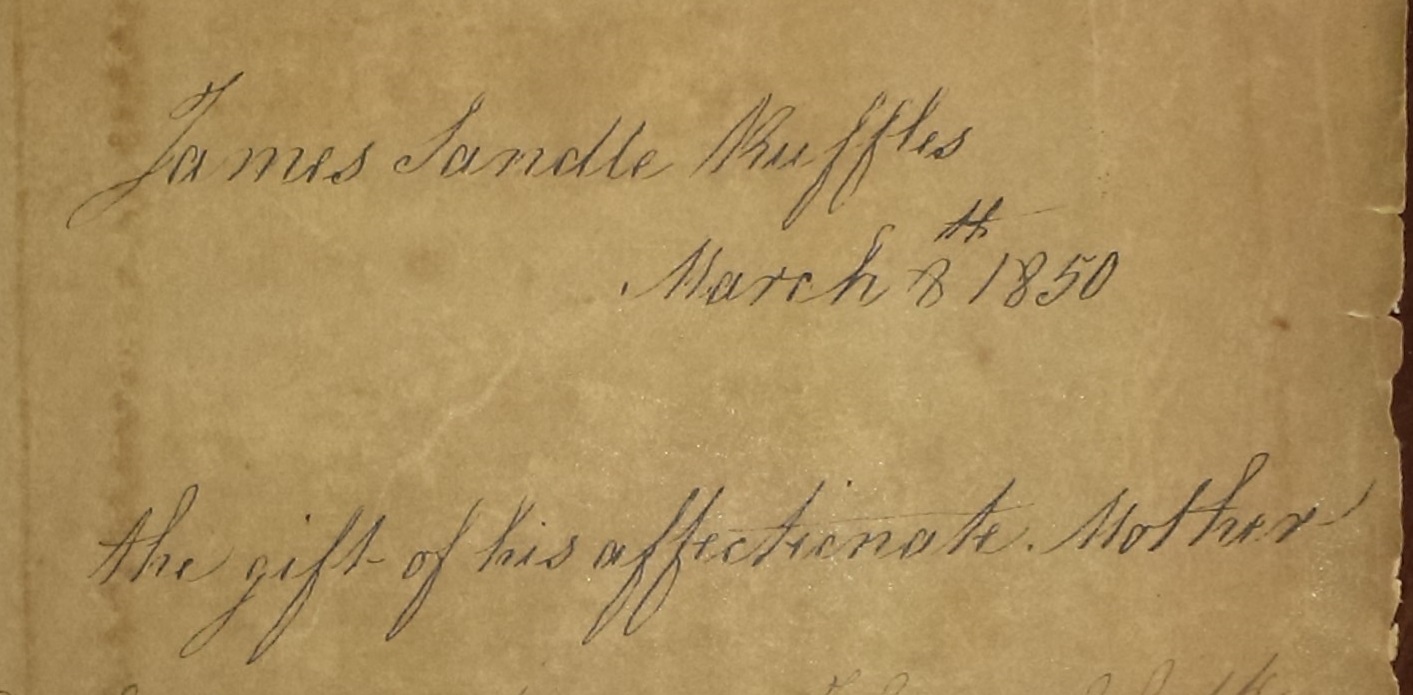 James Sandle Ruffles
March 8th 1850
the gift of his affectionate Mother